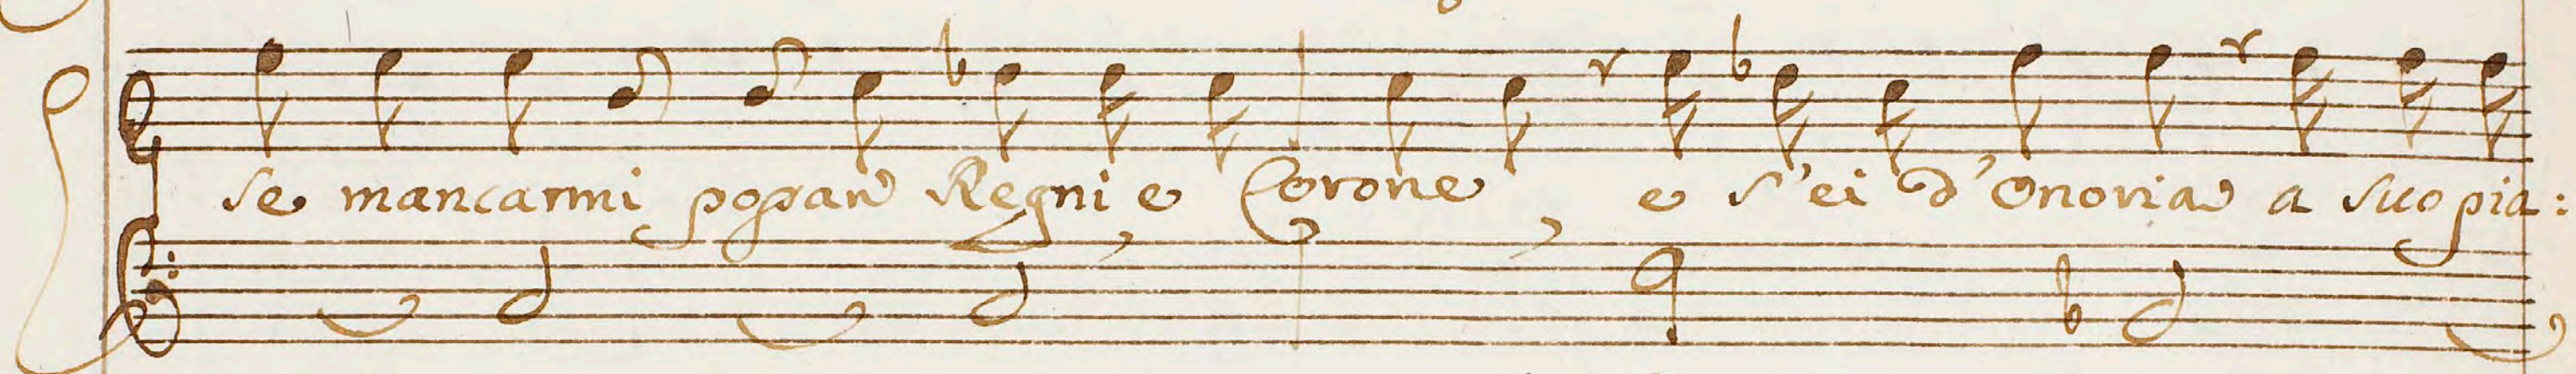 se mancarmi possan Regni e Corone, e s'ei d'Onoria a suo pia: